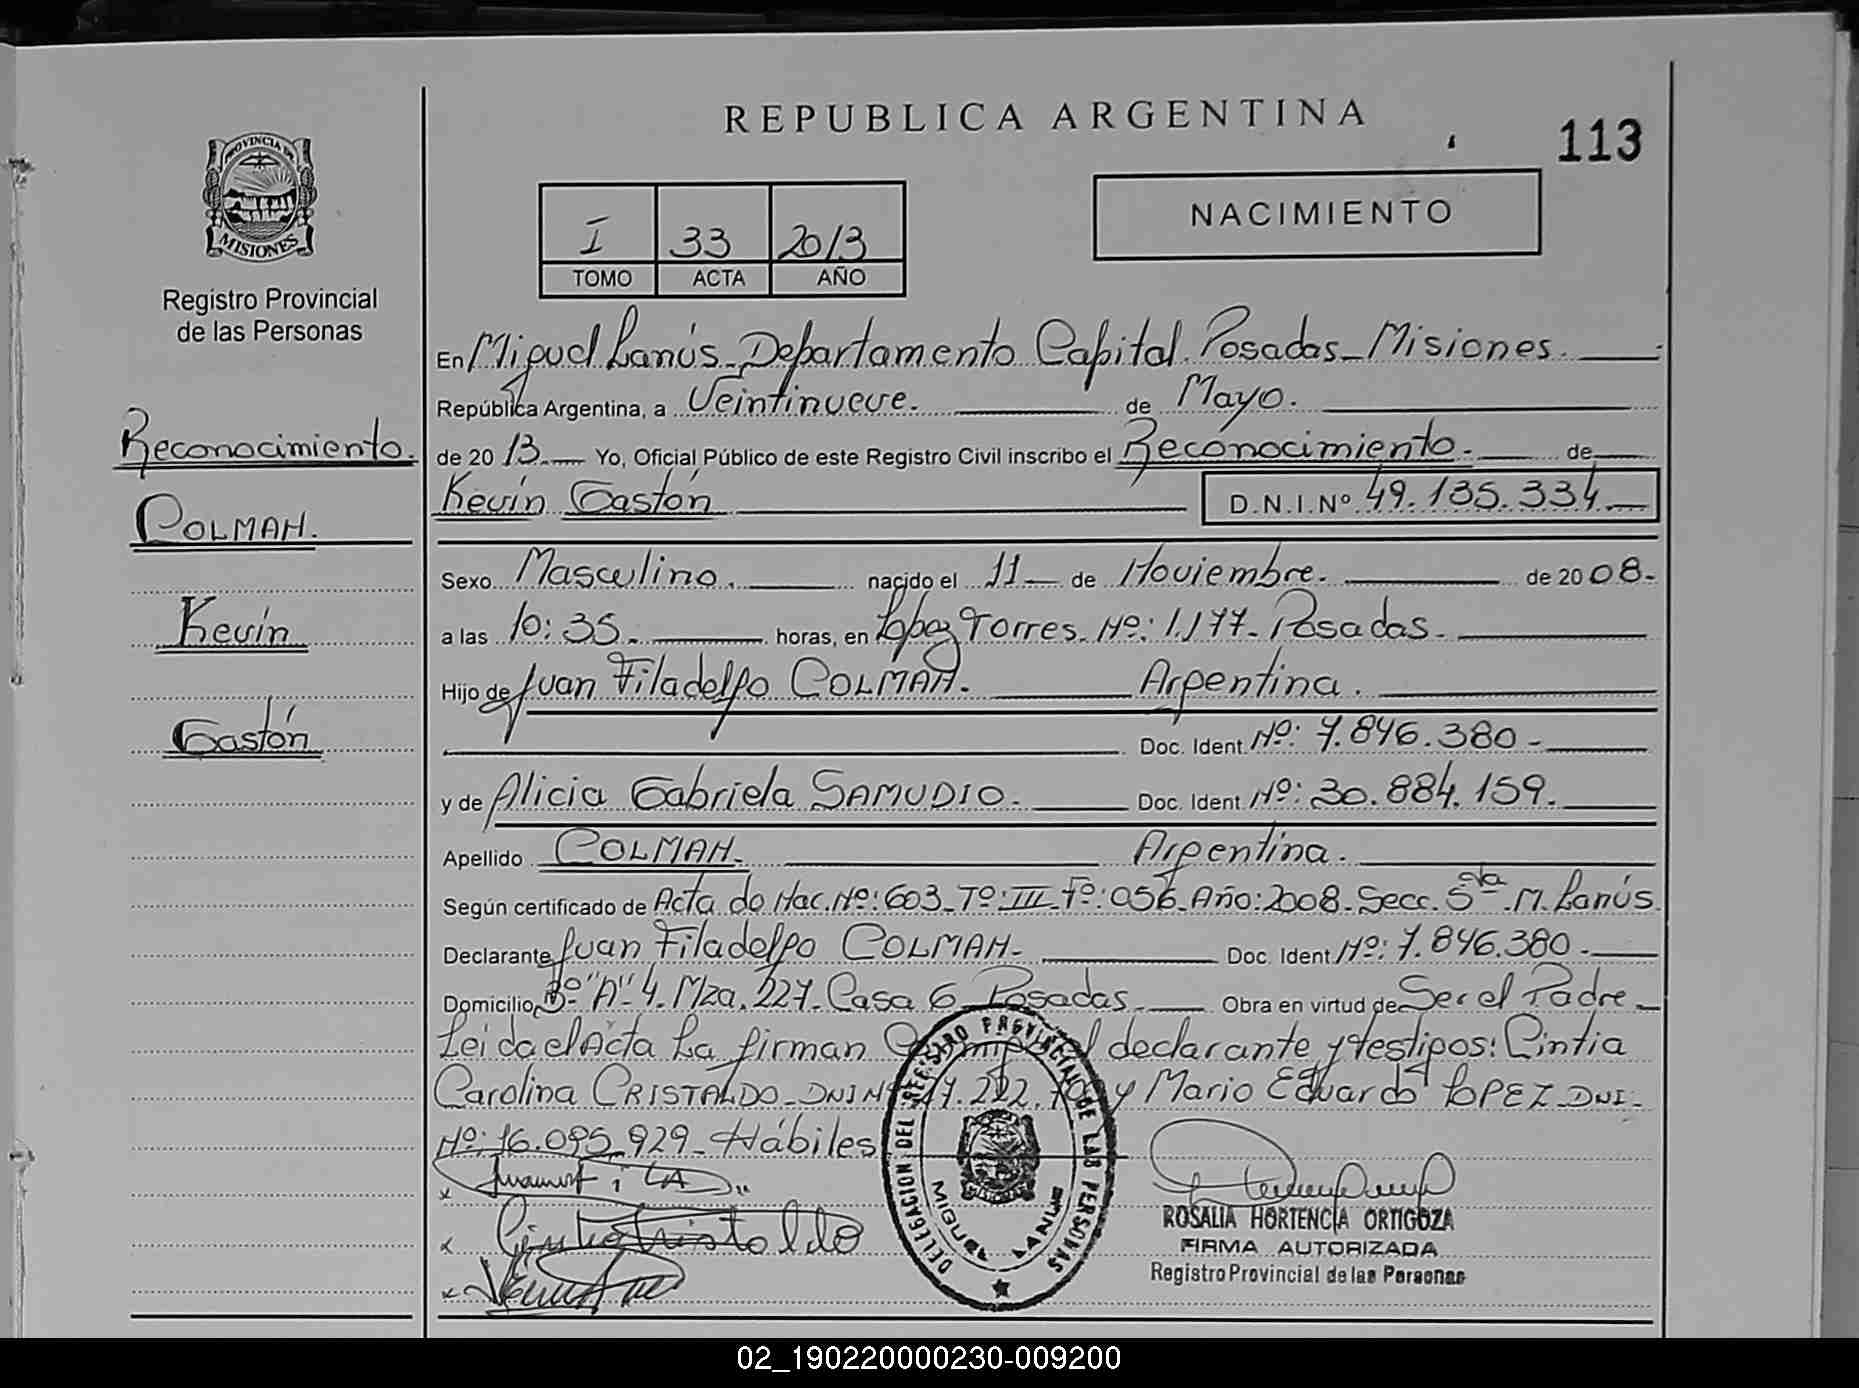 REPUBLICA ARGENTINA
113
PROVINCIA DE
MISIONES
Registro Provincial
de las Personas
NACIMIENTO
I 33 2013
TOMO ACTA AÑO
En Miguel Lanús - Departamento Capital. Posadas - Misiones.
República Argentina, a Veintinueve. de Mayo.
de 2013. Yo, Oficial Público de este Registro Civil inscribo el Reconocimiento. de
Kevin Gastón D.N.I.Nº 49.135.334
Reconocimiento.
COLMAN.
Kevin
Gastón
Sexo Masculino. nacido el 11 de Noviembre. de 2008-
a las 10:35. horas, en López Torres. Nº: 1.177- Posadas.
Hijo de Juan Filadelfo COLMAN. Argentina.
Doc. Ident. Nº: 7.846.380-
y de Alicia Gabriela SAMUDIO. Doc. Ident. Nº: 30.884.159.
Apellido COLMAN. Argentina.
Según certificado de Acta de Nac. Nº: 603-Tº: III-Fº: 056-Año: 2008-Secc. 5ta. M. Lanús
Declarante Juan Filadelfo COLMAN- Doc. Ident. Nº: 7.846.380-
Domicilio Bº "A" 4. Mza. 227. Casa 6 Posadas Obra en virtud de Ser el Padre-
Leida el Acta La firman declarante y testigos: Cintia
Carolina CRISTALDO-DNI y Mario Eduardo LOPEZ-DNI-
Nº: 16.095.929-Hábiles
DELEGACION DEL REGISTRO PROVINCIAL DE LAS PERSONAS
MIGUEL LANUS
ROSALIA HORTENCIA ORTIGOZA
FIRMA AUTORIZADA
Registro Provincial de las Personas
02_190220000230-009200